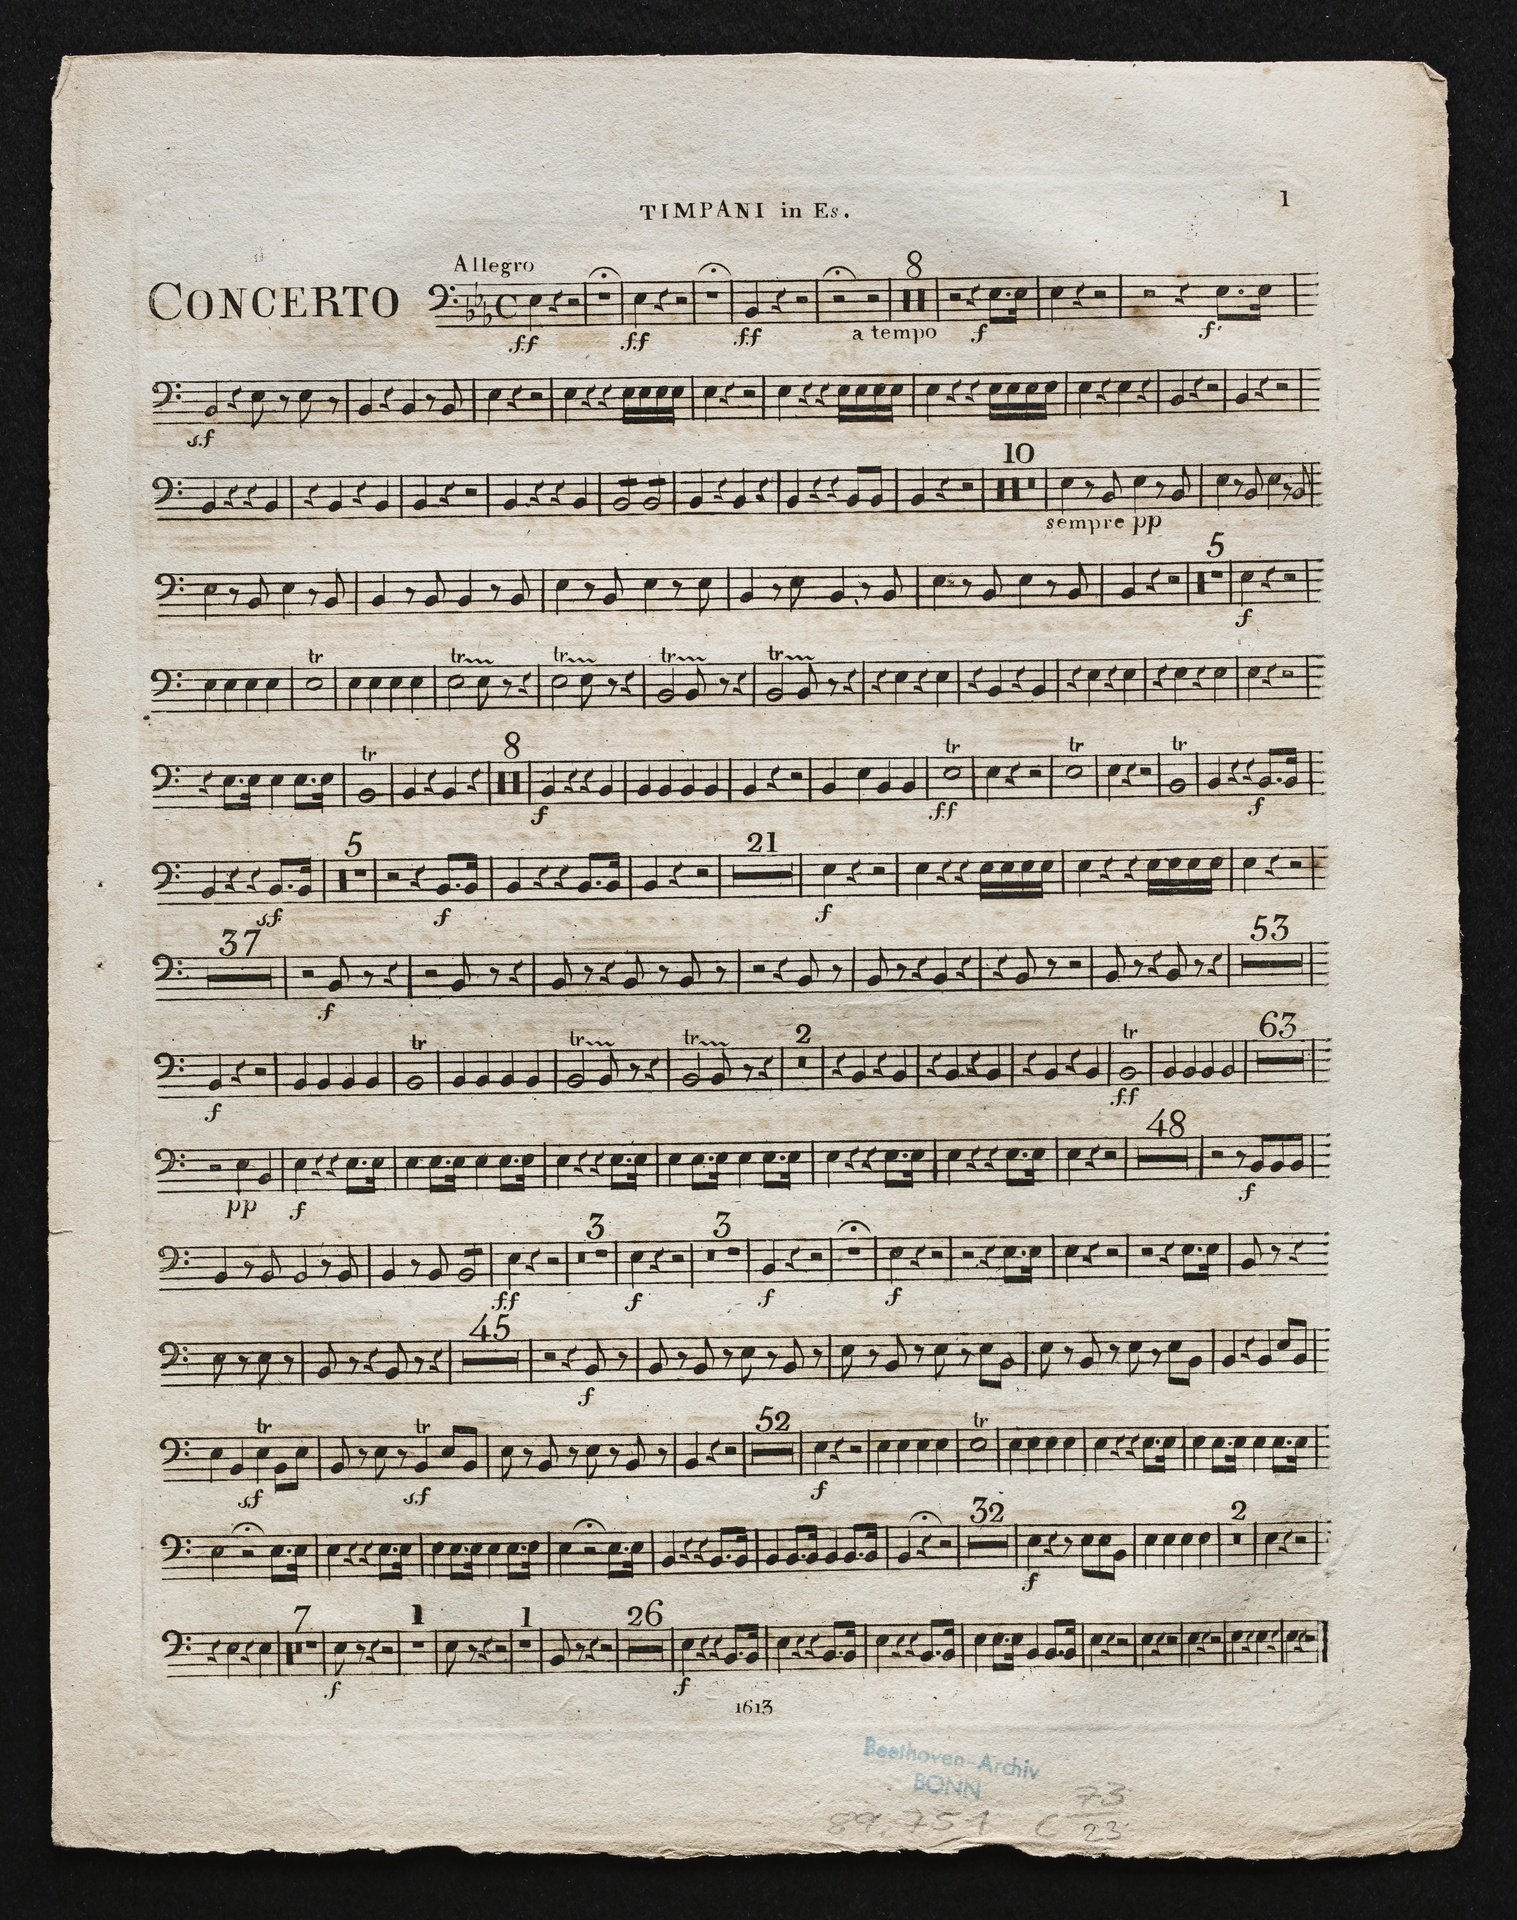 TIMPANI in Es.
1
Allegro
8
CONCERTO
ff ff ff a tempo f f
sf
10
sempre pp
5
f
tr tr tr tr tr
tr 8 tr tr tr
f ff f
5 21
sf f f
37 53
f
tr tr tr 2 tr 63
f ff
48
pp f f
3 3
ff f f f
45
f
tr tr 52 tr
sf sf f
32 2
f
7 1 1 26
f f
1613
Beethoven-Archiv
BONN
89,751 C 73
23